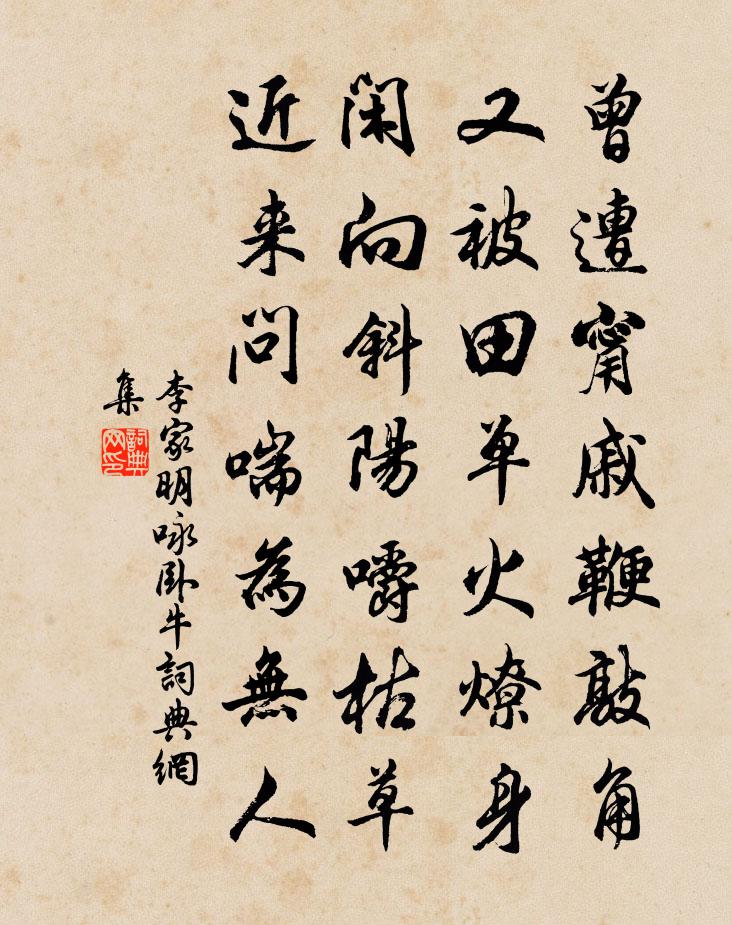 曾遭甯戚鞭敲角
又被田单火燎身
閑向斜陽嚼枯草
近来問喘為無人
李家明咏卧牛詞典網
集
詞典
网印